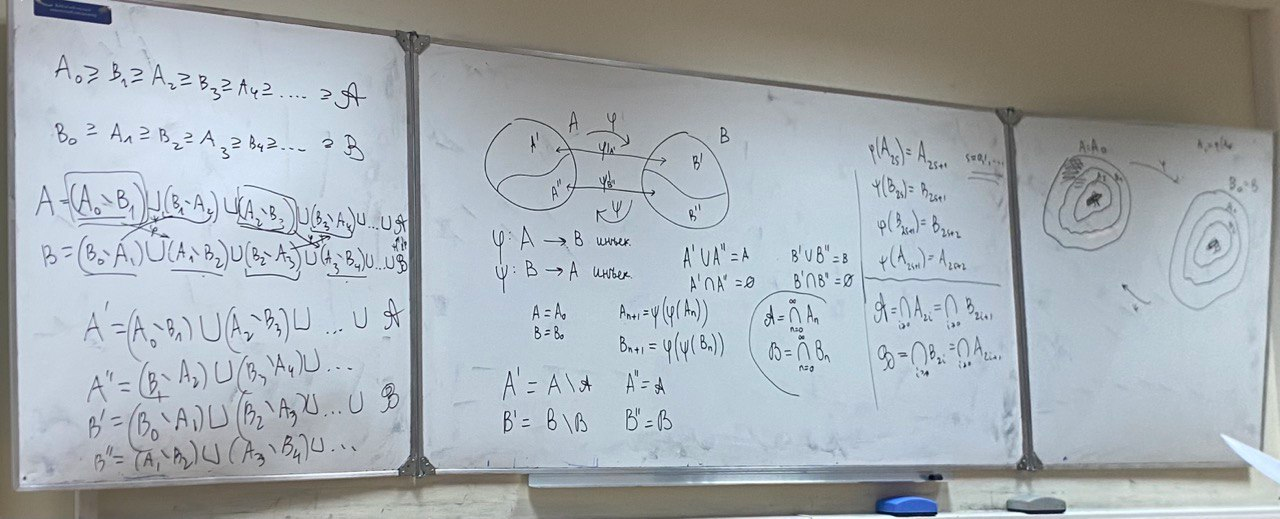 A₀ ≥ B₁ ≥ A₂ ≥ B₃ ≥ A₄ ≥ .... ≥ 𝒜
B₀ ≥ A₁ ≥ B₂ ≥ A₃ ≥ B₄ ≥ ... ≥ ℬ
A = (A₀∖B₁) ∪ (B₁∖A₂) ∪ (A₂∖B₃) ∪ (B₃∖A₄) ∪ ... ∪ 𝒜
B = (B₀∖A₁) ∪ (A₁∖B₂) ∪ (B₂∖A₃) ∪ (A₃∖B₄) ∪ ... ∪ ℬ
A' = (A₀∖B₁) ∪ (A₂∖B₃) ∪ ... ∪ 𝒜
A'' = (B₁∖A₂) ∪ (B₃∖A₄) ∪ ...
B' = (B₀∖A₁) ∪ (B₂∖A₃) ∪ ... ∪ ℬ
B'' = (A₁∖B₂) ∪ (A₃∖B₄) ∪ ...
A φ B
A' φ|A' B'
A'' ψ|B'' B''
ψ
φ: A → B инъек.
ψ: B → A инъек.
A' ∪ A'' = A B' ∪ B'' = B
A' ∩ A'' = ∅ B' ∩ B'' = ∅
A = A₀ Aₙ₊₁ = ψ(φ(Aₙ))
B = B₀ Bₙ₊₁ = φ(ψ(Bₙ))
𝒜 = ⋂ₙ₌₀^∞ Aₙ
ℬ = ⋂ₙ₌₀^∞ Bₙ
A' = A \ 𝒜 A'' = 𝒜
B' = B \ ℬ B'' = ℬ
φ(A₂ₛ) = A₂ₛ₊₁ s=0,1,...
ψ(B₂ₛ) = B₂ₛ₊₁
φ(B₂ₛ₊₁) = B₂ₛ₊₂
ψ(A₂ₛ₊₁) = A₂ₛ₊₂
𝒜 = ⋂ᵢ≥₀ A₂ᵢ = ⋂ᵢ≥₀ B₂ᵢ₊₁
ℬ = ⋂ᵢ≥₀ B₂ᵢ = ⋂ᵢ≥₀ A₂ᵢ₊₁
A=A₀
φ
B₀=B